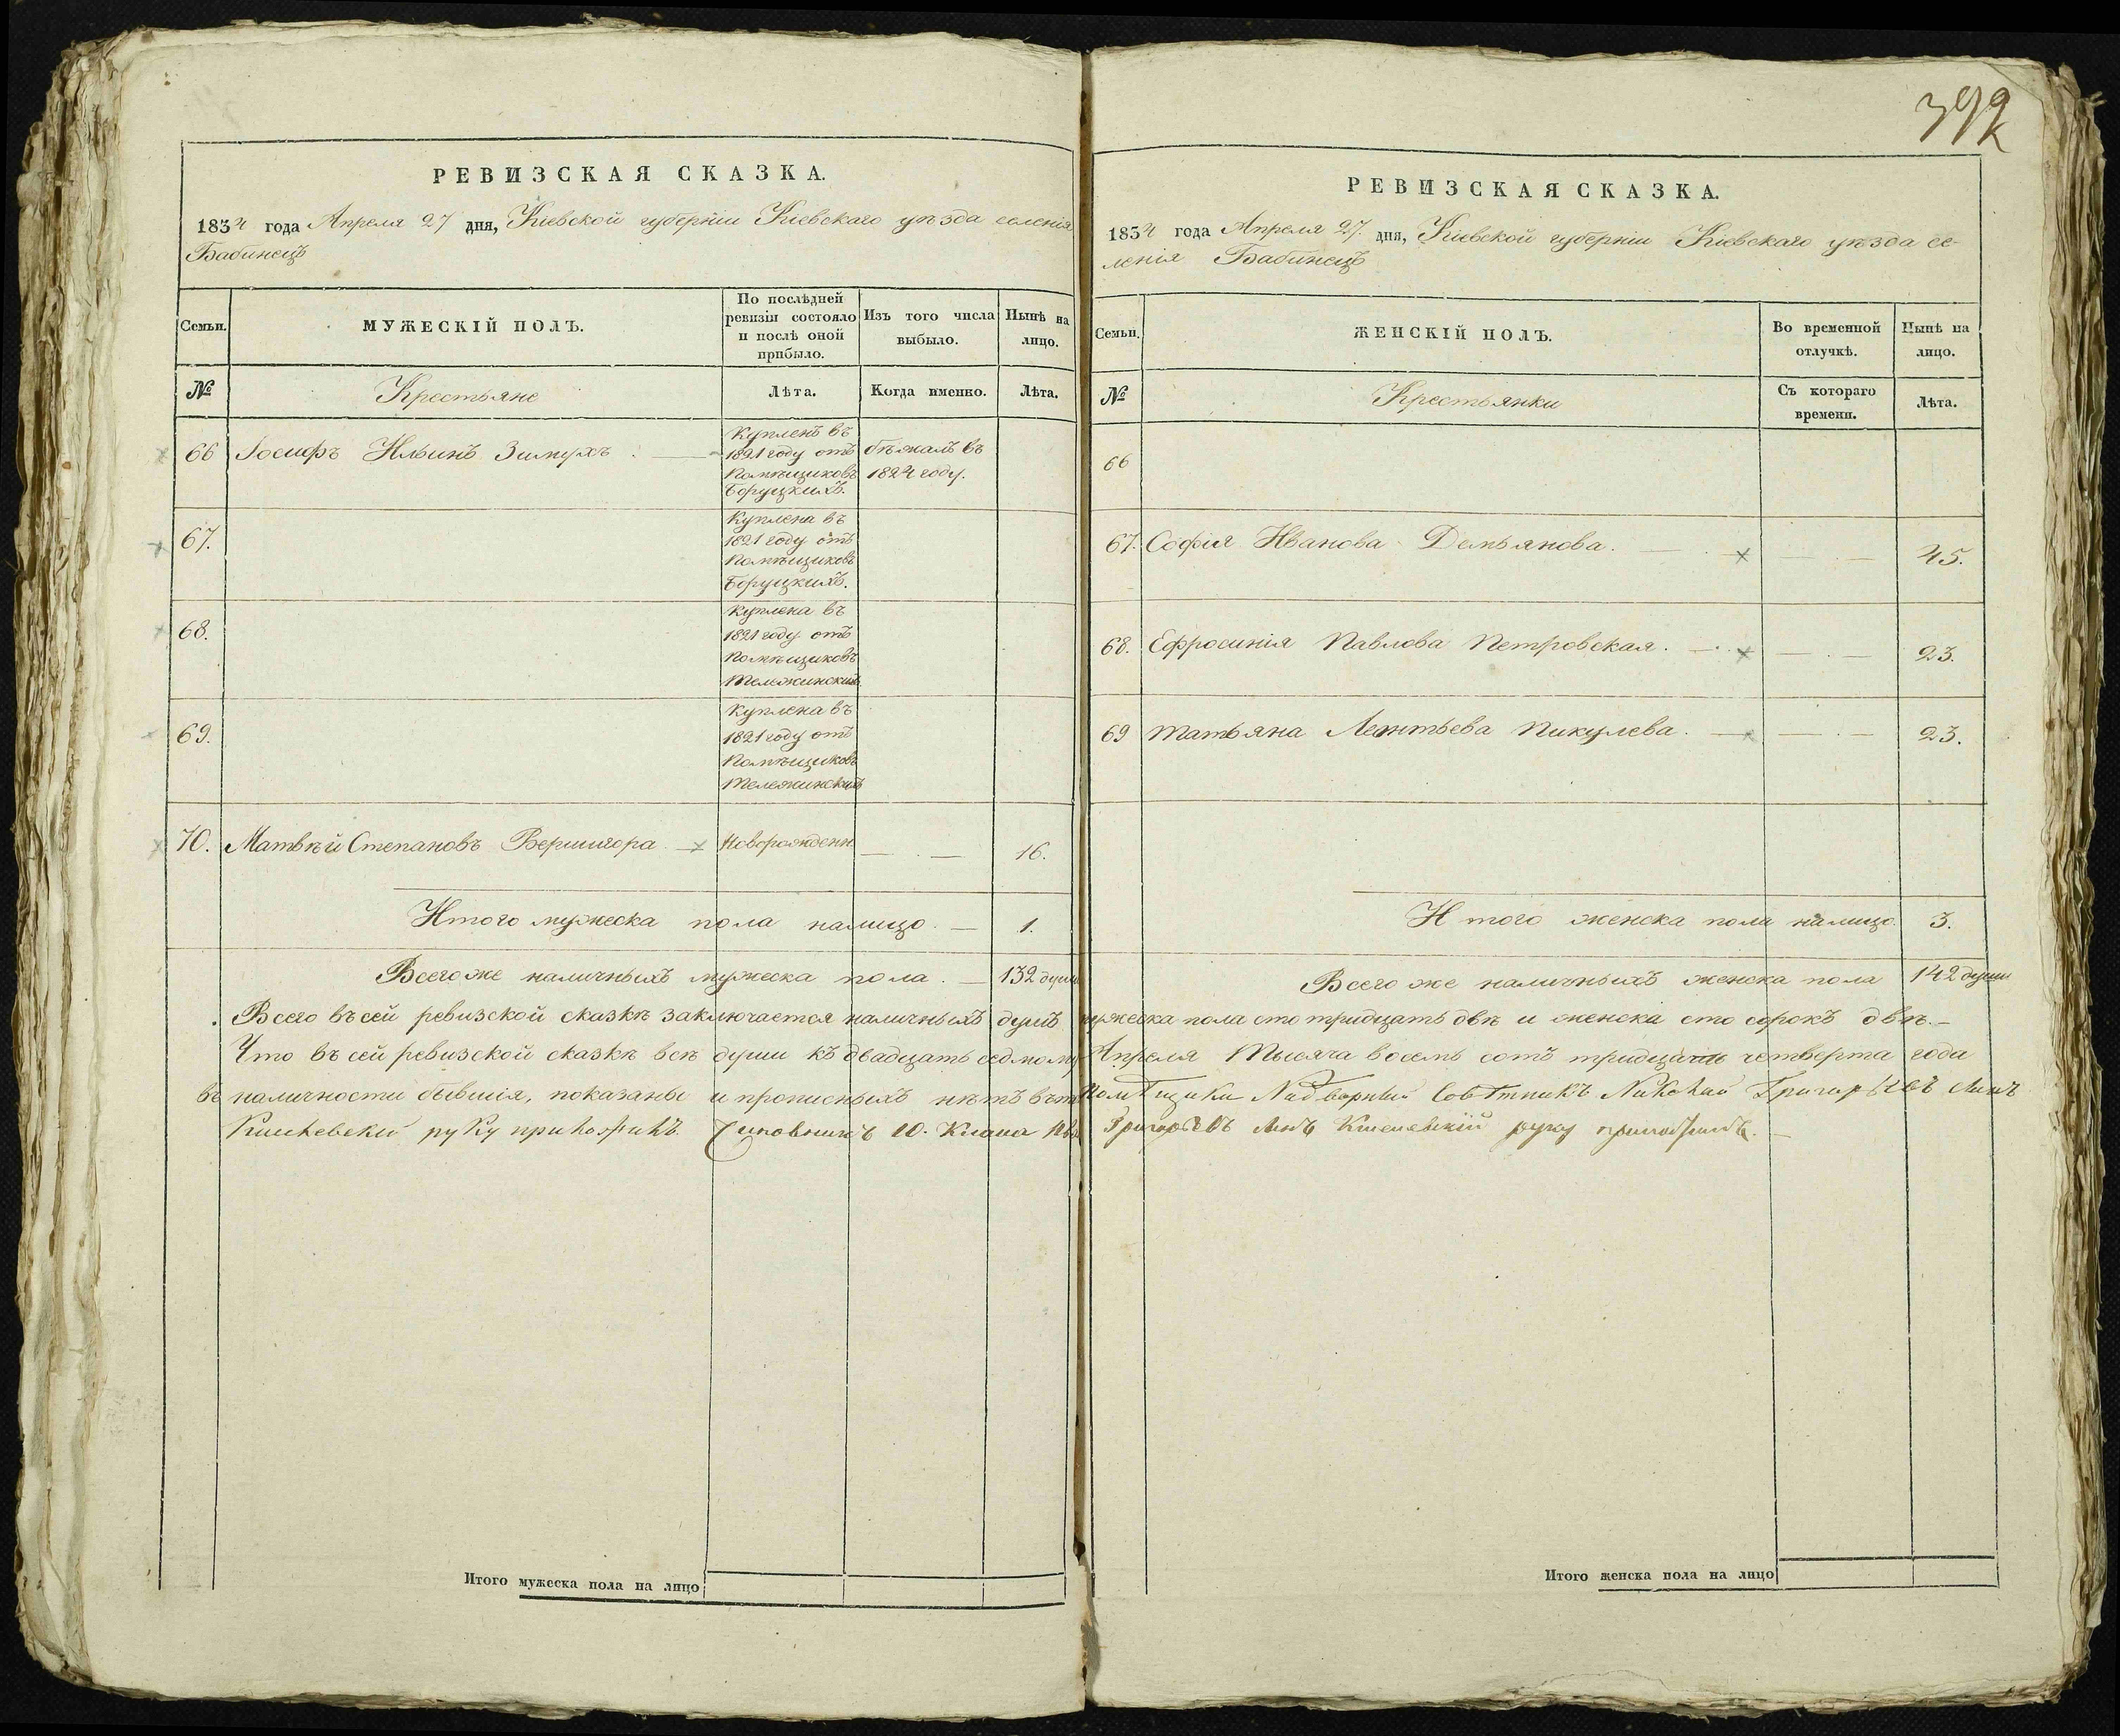 392
РЕВИЗСКАЯ СКАЗКА.
1834 года Апреля 27 дня, Кіевской губерніи Кіевскаго уѣзда селенія
Бабинецъ
Семьи.
МУЖЕСКІЙ ПОЛЪ.
По послѣдней
ревизіи состояло
и послѣ оной
прибыло.
Изъ того числа
выбыло.
Нынѣ на
лицо.
№
Крестьяне
Лѣта.
Когда именно.
Лѣта.
66 Іосифъ Ильинъ Зимухъ
Купленъ въ
1821 году отъ
Помѣщиковъ
Боруцкихъ.
бѣжалъ въ
1824 году.
67.
Куплена въ
1821 году отъ
Помѣщиковъ
Боруцкихъ.
68.
Куплена въ
1821 году отъ
Помѣщиковъ
Тележинскихъ
69.
Куплена въ
1821 году отъ
Помѣщиковъ
Тележинскихъ
70. Матвѣй Степановъ Вернигора
Новорожденн
16.
Итого мужеска пола налицо 1.
Всего же наличныхъ мужеска пола 132 души
РЕВИЗСКАЯ СКАЗКА.
1834 года Апреля 27. дня, Кіевской губерніи Кіевскаго уѣзда се-
ленія Бабинецъ
Семьи.
ЖЕНСКІЙ ПОЛЪ.
Во временной
отлучкѣ.
Нынѣ на
лицо.
№
Крестьянки
Съ котораго
времени.
Лѣта.
66
67. Софія Иванова Демьянова. 45.
68. Ефросинія Павлова Петровская. 23.
69 Татьяна Леонтьева Пикулева. 23.
Итого женска пола налицо. 3.
Всего же наличныхъ женска пола 142 души
Всего въ сей ревизской сказкѣ заключается наличныхъ душъ мужеска пола сто тридцать двѣ и женска сто сорокъ двѣ.
Что въ сей ревизской сказкѣ всѣ души къ двадцать седмому Апреля Тысяча восемь сотъ тридцать четверта года
въ наличности бывшія, показаны и прописныхъ нѣтъ въ томъ Помѣщики Надворный Совѣтникъ Николай Григорьевъ Сынъ
руку приложилъ Чиновникъ 10. Класа Григорьевъ Сынъ руку приложилъ.
Итого мужеска пола на лицо
Итого женска пола на лицо